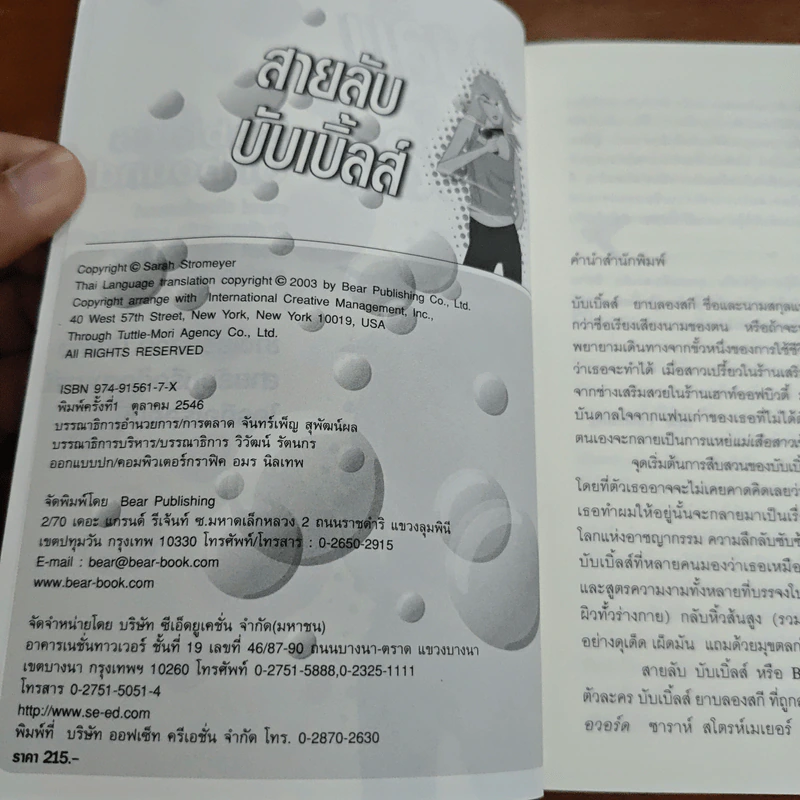 สายลับ
บับเบิ้ลส์
Copyright © Sarah Stromeyer
Thai Language translation copyright © 2003 by Bear Publishing Co., Ltd.
Copyright arrange with International Creative Management, Inc.,
40 West 57th Street, New York, New York 10019, USA
Through Tuttle-Mori Agency Co., Ltd.
All RIGHTS RESERVED
ISBN 974-91561-7-X
พิมพ์ครั้งที่1 ตุลาคม 2546
บรรณาธิการอำนวยการ/การตลาด จันทร์เพ็ญ สุพัฒน์ผล
บรรณาธิการบริหาร/บรรณาธิการ วิวัฒน์ รัตนกร
ออกแบบปก/คอมพิวเตอร์กราฟิค อมร นิลเทพ
จัดพิมพ์โดย Bear Publishing
2/70 เดอะ แกรนด์ รีเจ้นท์ ซ.มหาดเล็กหลวง 2 ถนนราชดำริ แขวงลุมพินี
เขตปทุมวัน กรุงเทพ 10330 โทรศัพท์/โทรสาร : 0-2650-2915
E-mail : bear@bear-book.com
www.bear-book.com
จัดจำหน่ายโดย บริษัท ซีเอ็ดยูเคชั่น จำกัด(มหาชน)
อาคารเนชั่นทาวเวอร์ ชั้นที่ 19 เลขที่ 46/87-90 ถนนบางนา-ตราด แขวงบางนา
เขตบางนา กรุงเทพฯ 10260 โทรศัพท์ 0-2751-5888,0-2325-1111
โทรสาร 0-2751-5051-4
http://www.se-ed.com
พิมพ์ที่ บริษัท ออฟเซ็ท ครีเอชั่น จำกัด โทร. 0-2870-2630
ราคา 215.-
คำนำสำนักพิมพ์
บับเบิ้ลส์ ยาบลองสกี ชื่อและนามสกุล
กว่าชื่อเรียงเสียงนามของตน หรือถ้าจะ
พยายามเดินทางจากขั้วหนึ่งของการใช้
ว่าเธอจะทำได้ เมื่อสาวเปรี้ยวในร้านเสริ
จากช่างเสริมสวยในร้านเฮาท์ออฟบิวตี้
บันดาลใจจากแฟนเก่าของเธอที่ไม่ได้
ตนเองจะกลายเป็นการแหย่แม่เสือสาว
จุดเริ่มต้นการสืบสวนของบับเบิ้
โดยที่ตัวเธออาจจะไม่เคยคาดคิดเลย
เธอทำผมให้อยู่นั้นจะกลายมาเป็นเรื่
โลกแห่งอาชญากรรม ความลึกลับซับ
บับเบิ้ลส์ที่หลายคนมองว่าเธอเหมือ
และสูตรความงามทั้งหลายที่บรรจงใ
ผิวทั่วร่างกาย) กลับหิ้วส้นสูง (รวม
อย่างดุเด็ด เผ็ดมัน แถมด้วยมุขตลก
สายลับ บับเบิ้ลส์ หรือ B
ตัวละคร บับเบิ้ลส์ ยาบลองสกี ที่ถูก
อวอร์ด ซาราห์ สโตรห์เมเยอร์